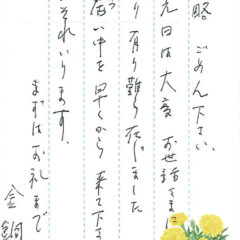 略 ごめん下さい。
先日は大変 お世話さまに
り有り難う存じました
い中を早くから来て下さ
それいります。
まずはお礼まで
金